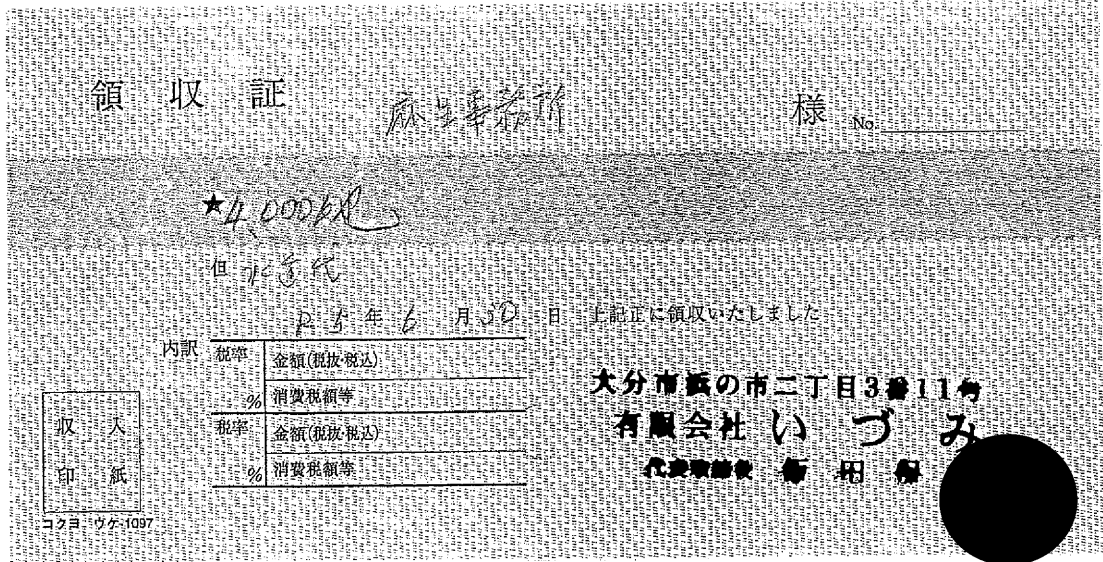 領収証 麻生事務所 様 No.
★4,000也
但 水道代
R5年6月30日 上記正に領収いたしました
内訳 税率 金額(税抜・税込)
% 消費税額等
税率 金額(税抜・税込)
% 消費税額等
収入
印紙
コクヨ ウケ-1097
大分市浜の市二丁目3番11号
有限会社 いづみ
代表取締役